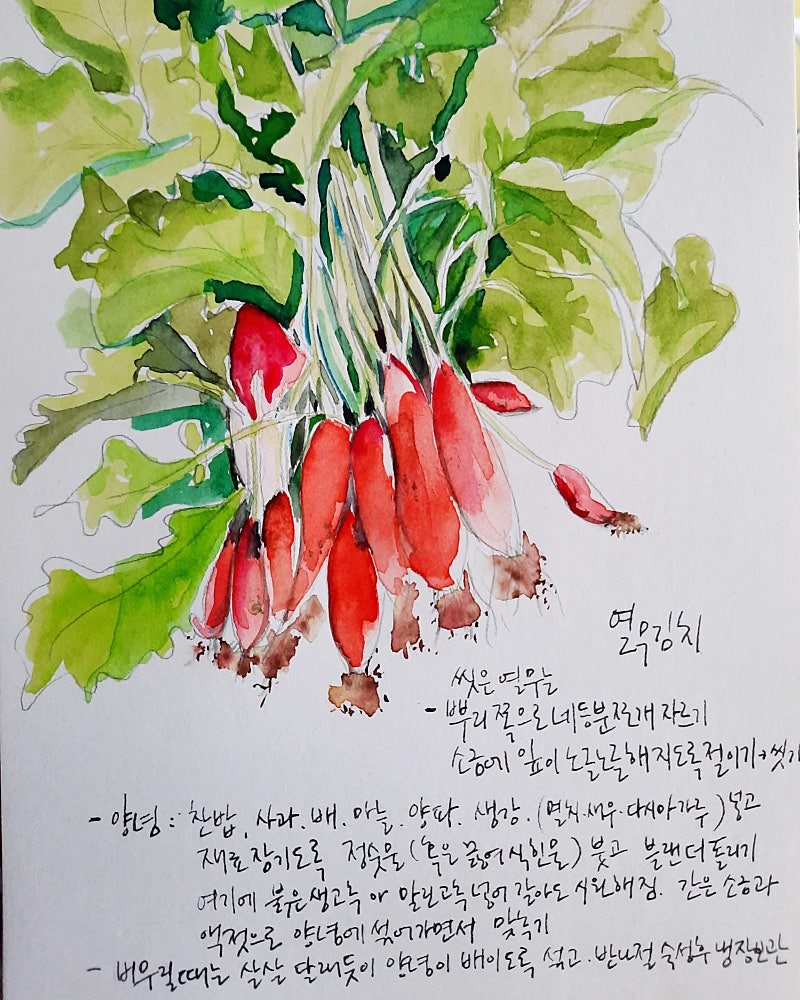 열무김치
씻은 열무는
- 뿌리쪽으로 네등분 쪼개 자르기
소금에 잎이 노글노글해지도록 절이기→씻기
- 양념 : 찬밥, 사과. 배. 마늘. 양파. 생강. (멸치.새우.다시마가루) 넣고
재료 잠기도록 정숫물 (혹은 끓여 식힌물) 붓고 블랜더 돌리기
여기에 붉은 생고추 나 말린고추 넣어 갈아도 시원해짐. 간은 소금과
액젓으로 양념에 섞어가면서 맞추기
- 버무릴때는 살살 달래듯이 양념이 배이도록 섞고. 반나절 숙성후 냉장보관